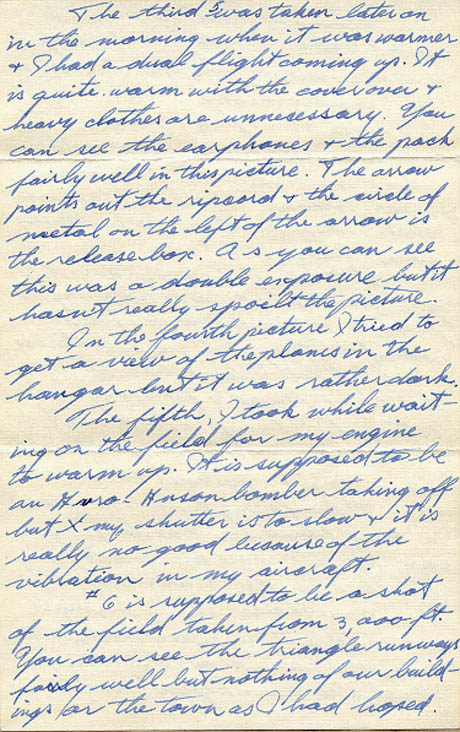 The third was taken later on
in the morning when it was warmer
& I had a dual flight coming up. It
is quite warm with the cover over &
heavy clothes are unnesessary. You
can see the earphones & the pack
fairly well in this picture. The arrow
points out the ripcord & the circle of
metal on the left of the arrow is
the release box. As you can see
this was a double exposure but it
hasn't really spoilt the picture.
In the fourth picture I tried to
get a view of the planes in the
hangar but it was rather dark.
The fifth, I took while wait-
ing on the field for my engine
to warm up. It is supposed to be
an Avro-Anson bomber taking off
but my shutter is to slow & it is
really no good because of the
vibration in my aircraft.
#6 is supposed to be a shot
of the field taken from 3,000 ft.
You can see the triangle runways
fairly well but nothing of our build-
ings or the town as I had hoped.